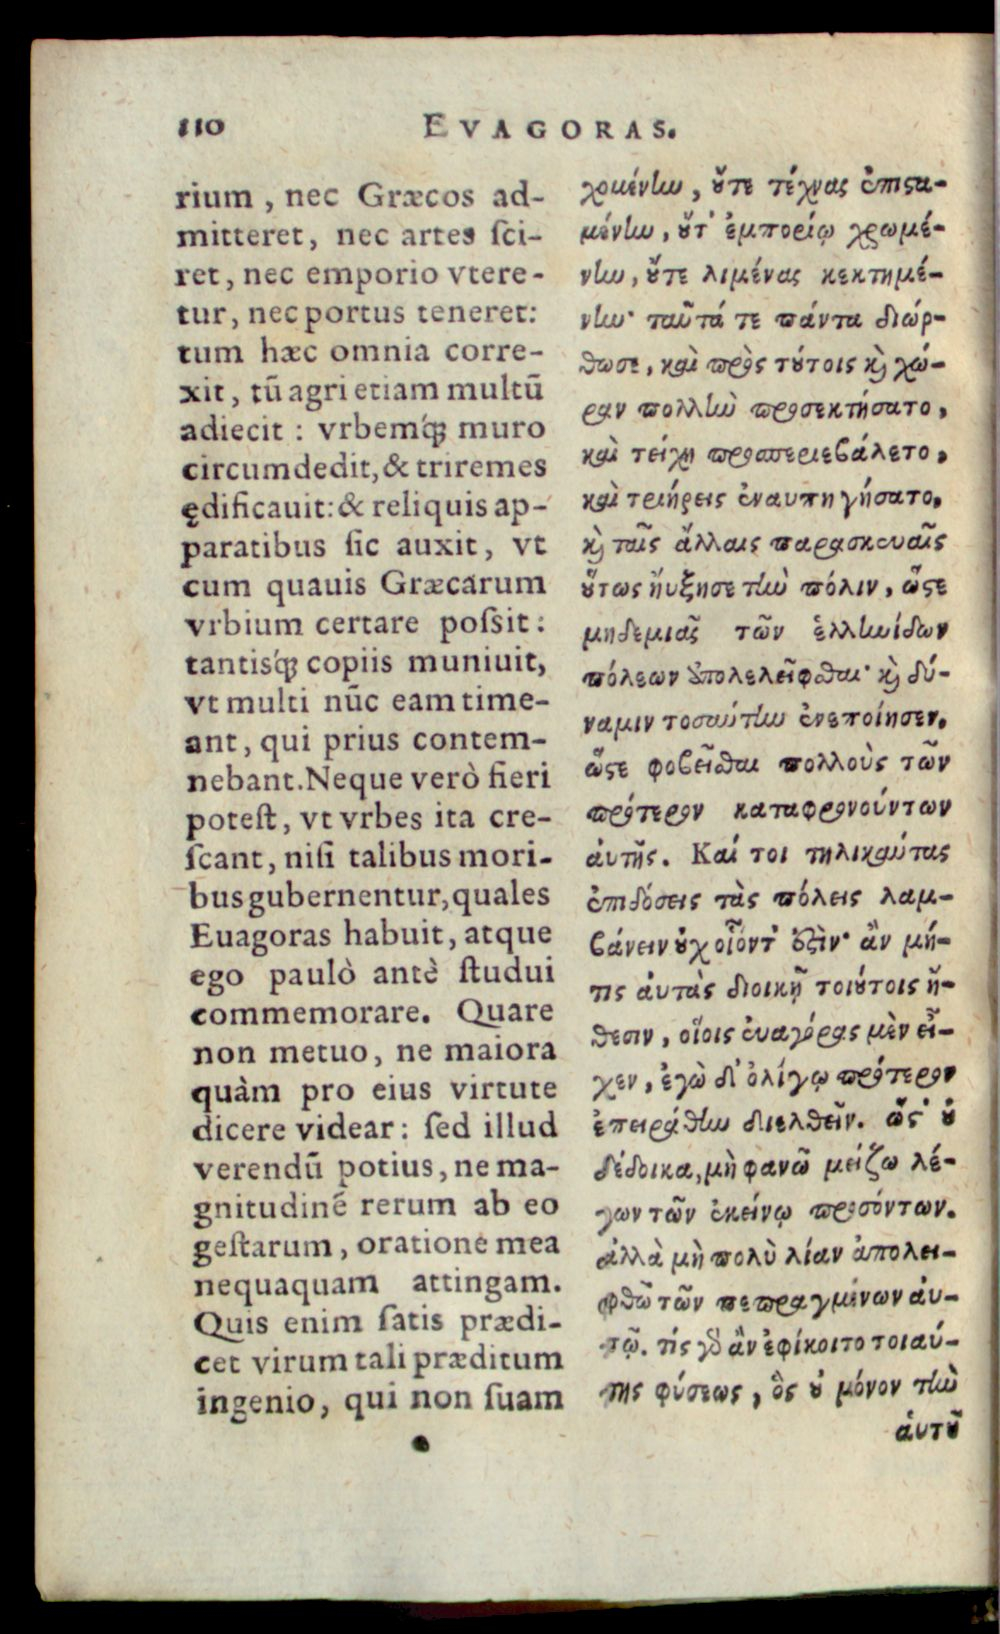 110 EVAGORAS.
rium, nec Græcos ad-
mitteret, nec artes ſci-
ret, nec emporio vtere-
tur, nec portus teneret:
tum hæc omnia corre-
xit, tū agri etiam multū
adiecit : vrbemq́ꝫ muro
circumdedit, & triremes
ędificauit: & reliquis ap-
paratibus ſic auxit, vt
cum quauis Græcarum
vrbium certare poſsit:
tantisq́ꝫ copiis muniuit,
vt multi nūc eam time-
ant, qui prius contem-
nebant. Neque verò fieri
poteſt, vt vrbes ita cre-
ſcant, niſi talibus mori-
bus gubernentur, quales
Euagoras habuit, atque
ego paulò antè ſtudui
commemorare. Quare
non metuo, ne maiora
quàm pro eius virtute
dicere videar: ſed illud
verendū potius, ne ma-
gnitudinē rerum ab eo
geſtarum, oratione mea
nequaquam attingam.
Quis enim ſatis prædi-
cet virum tali præditum
ingenio, qui non ſuam
χομένην, ȣ̓́τε τέχνας ἐπιϛα-
μένην, ȣ̓́τ' ἐμπορίῳ χρωμέ-
νην, ȣ̓́τε λιμένας κεκτημέ-
νην· ταῦτά τε πάντα διώρ-
θωσε, καὶ πρὸς τȣ́τοις κὶ χώ-
ραν πολλὴν προσεκτήσατο,
καὶ τείχη προσπεριεβάλετο,
καὶ τριήρεις ἐναυπηγήσατο,
κὶ ταῖς ἄλλαις παρασκευαῖς
ȣ̔́τως ἤυξησε τὴν πόλιν, ὥϛε
μηδεμιᾶς τῶν ἑλληνίδων
πόλεων ὑπολελεῖφθαι· κὶ δύ-
ναμιν τοσαύτην ἐνεποίησεν,
ὥϛε φοβεῖσθαι πολλοὺς τῶν
πρότερον καταφρονούντων
ἀυτῆς. Καί τοι τηλικαύτας
ἐπιδόσεις τὰς πόλεις λαμ-
βάνειν ȣ̓χ οἷόντ' ἐϛὶν· ἂν μή-
τις ἀυτὰς διοικῇ τοιȣ́τοις ἤ-
θεσιν, οἵοις ἐυαγόρας μὲν εἶ-
χεν, ἐγὼ δ' ὀλίγῳ πρότερον
ἐπειράθην διελθεῖν. ὥϛ' ȣ̓
δέδοικα, μὴ φανῶ μείζω λέ-
γων τῶν ἐκείνῳ προσόντων.
ἀλλὰ μὴ πολὺ λίαν ἀπολει-
φθῶ τῶν πεπραγμένων ἀυ-
τῷ. τίς γὸ ἂν ἐφίκοιτο τοιαύ-
της φύσεως, ὃς ȣ̓ μόνον τὴν
ἁυτȣ͂